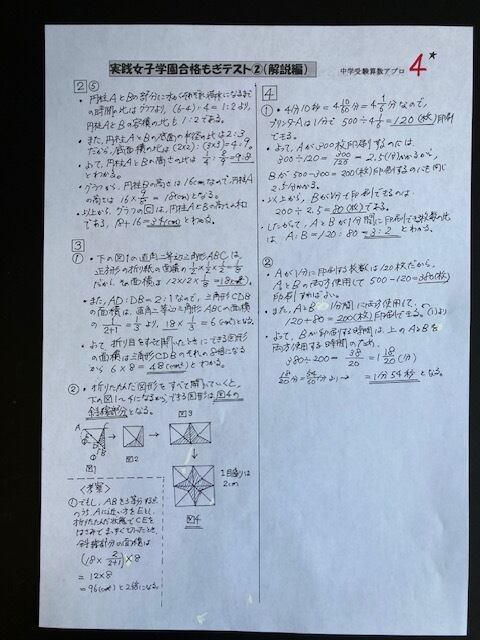 実践女子学園合格もぎテスト②(解説編)
中学受験算数アプロ 4
2 ⑤
・円柱AとBの部分に水が
の時間の比はグラフより、(6-4):4=1:2より、
円柱AとBの容積の比も1:2である。
・また、円柱AとBの底面の半径の比は2:3
だから、底面積の比は(2×2):(3×3)=4:9。
・よって、円柱AとBの高さの比は 1/4:2/9=9:8
とわかる。
・グラフから、円柱Bの高さは16cmなので、円柱A
の高さは 16×9/8=18(cm)となる。
・以上から、グラフの□は、円柱AとBの高さの和
である、18+16=34(cm)とわかる。
3
① ・下の図1の直角二等辺三角形ABCは、
正方形の折り紙の面積の1/2×1/2×1/2=1/8
だから、その面積は 12×12×1/8=18(cm²)。
・また、AD:DB=2:1なので、三角形CDB
の面積は、直角二等辺三角形ABCの面積の
1/(2+1)=1/3より、18×1/3=6(cm²)となる。
・よって、折り目をすべて開いたときにできる図形
の面積は三角形CDBのそれの8倍になる
から 6×8=48(cm²)とわかる。
② ・折りたたんだ図形をすべて開いていくと、
下の図1~4になるから、できる図形は、図4の
斜線部分となる。
A
C
図1
図2
図3
1目盛りは
2cm
図4
<考察>
①でもし、ABを3等分する点
のうち、Aに近い方をEとし、
折りたたんだ状態でCEを
はさみでまっすぐ切ったとき、
斜線部分の面積は
(18×2/(2+1))×8
=12×8
=96(cm²)と2倍になる。
4
① ・4分10秒=4 10/60分=4 1/6分なので、
プリンタAは1分で 500÷4 1/6=120(枚)印刷
できる。
・よって、Aが300枚印刷するのには、
300÷120=300/120=2.5(分)かかるから、
Bが500-300=200(枚)印刷するのにも同じ
2.5分かかる。
・以上から、Bが1分で印刷できるのは、
200÷2.5=80(枚)である。
・したがって、AとBが1分間に印刷できる枚数の比
は A:B=120:80=3:2 とわかる。
② ・Aが1分に印刷する枚数は120枚だから、
AとBの両方使用して500-120=380(枚)
印刷すればよい。
・また、AとBを1分間に両方使用して、
120+80=200(枚)印刷できる。(①より)
・よって、Bが印刷する時間は、上のAとBを
両方使用する時間のため、
380÷200=38/20=1 18/20(分)
18/20分=54/60分より → =1分54秒 となる。